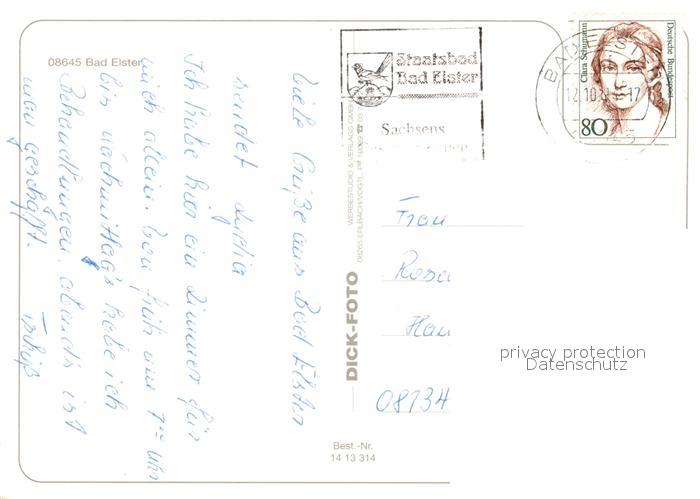 08645 Bad Elster
Viele Grüße aus Bad Elster
sendet Lydia
Ich habe hier ein Zimmer für
mich allein. Von früh um 7 Uhr
bis nachmittags habe ich
Behandlungen, abends ist
man geschafft.
Tschüß
WERBESTUDIO & VERLAGS GMBH
08265 ERLBACH/VOGTL.
DICK-FOTO
Best.-Nr.
14 13 314
Staatsbad
Bad Elster
Sachsens
BAD ELSTER
12.10.
Clara Schumann
Deutsche Bundespost
80
Frau
Rosa
Hau
08134
privacy protection
Datenschutz